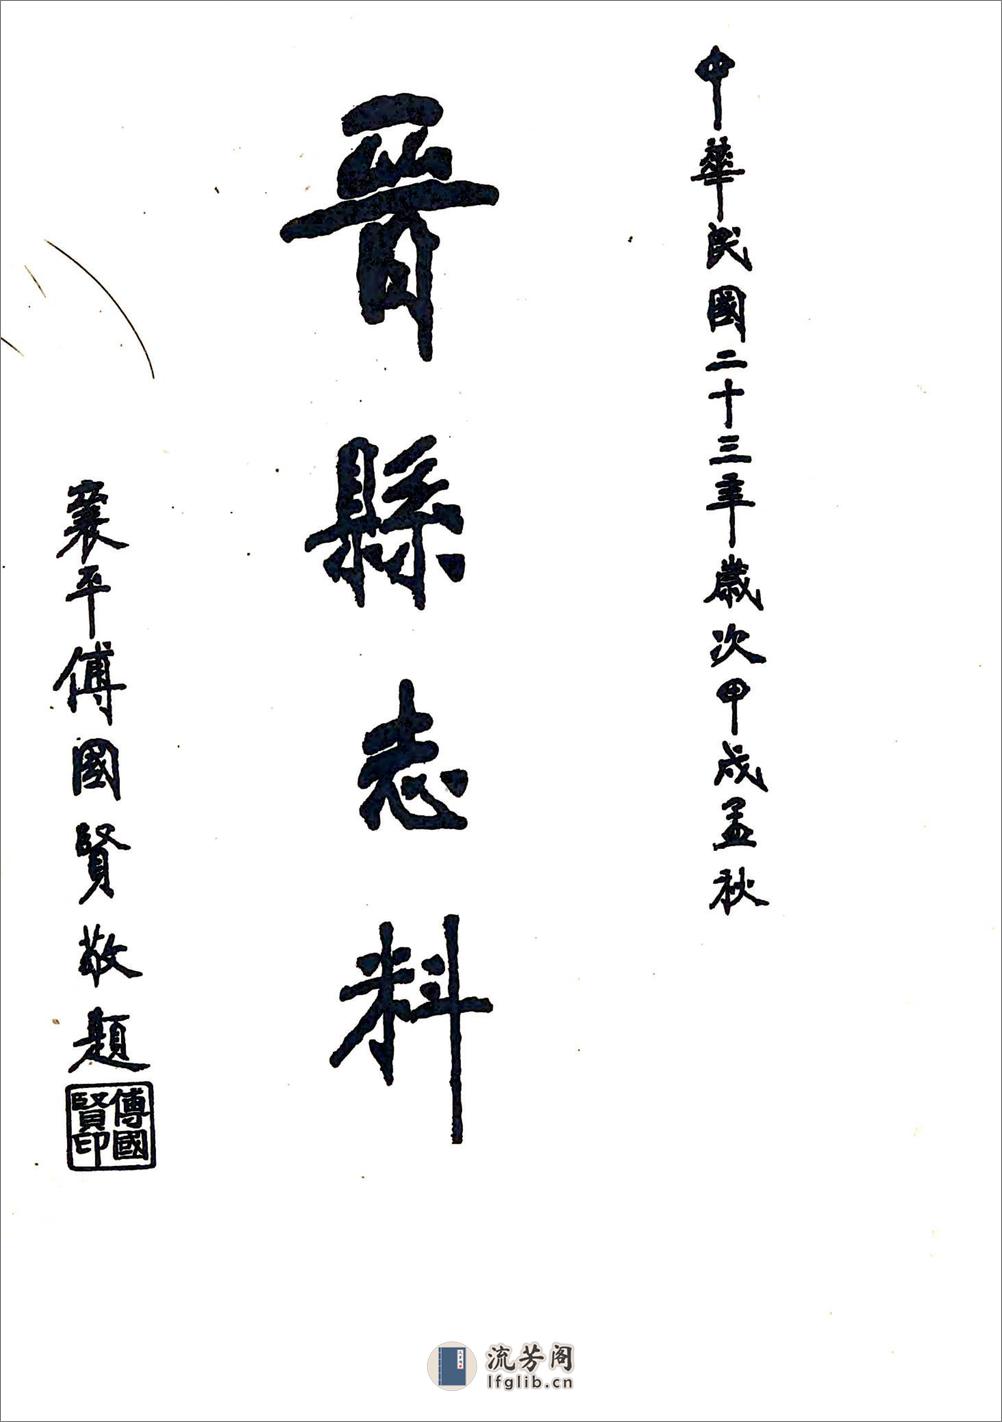 中華民國二十三年歲次甲戌孟秋
晋縣志料
襄平傅國賢敬題
傅國賢印
流芳阁
lfglib.cn